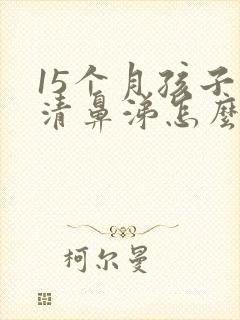 15个月孩子
清鼻涕怎麽
柯尔曼